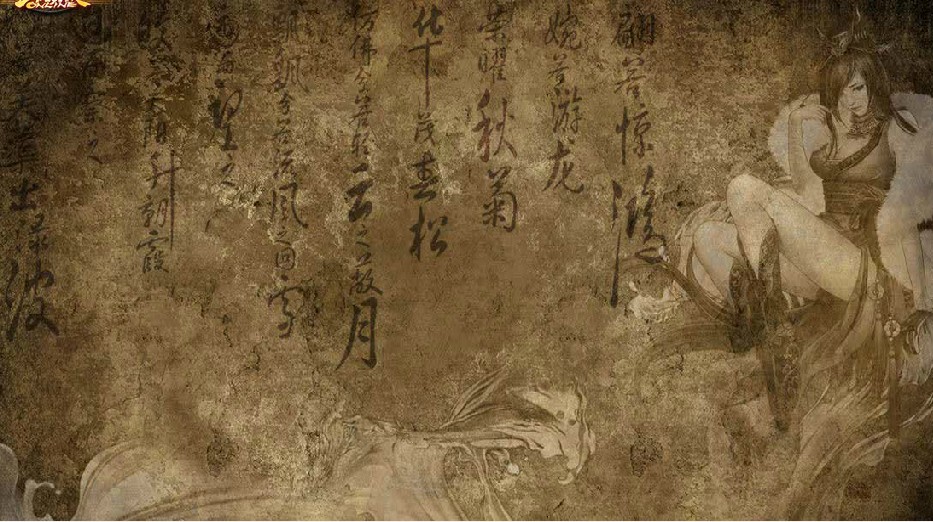 翩若惊鸿
婉若游龙
荣曜秋菊
华茂春松
仿佛兮若轻云之蔽月
飘飖兮若流风之回雪
远而望之
皎若太阳升朝霞
迫而察之
灼若芙蕖出渌波